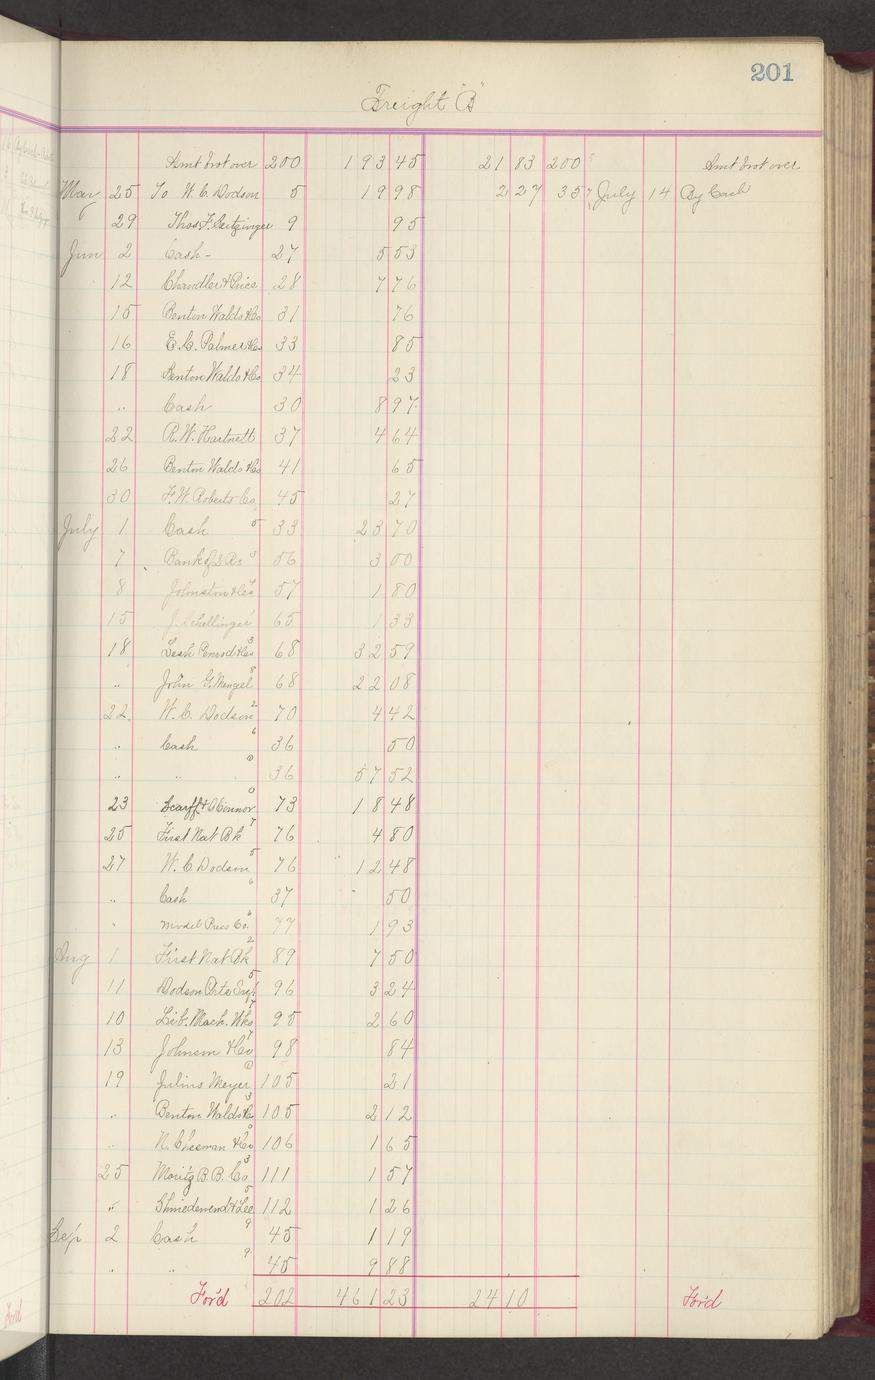 201
Freight "B"
Amt brot over 200 193 45 21 83 200 Amt brot over
May 25 To W. C. Dodson 5 19 98 2 27 35 July 14 By Cash
29 Thos. F. Leitzinger 9 95
Jun 2 Cash - 27 5 53
12 Chandler & Price 28 7 76
15 Benton Waldo & Co 31 76
16 E. C. Palmer & Co 33 85
18 Benton Waldo & Co 34 23
" Cash 30 8 97
22 R. W. Hartnett 37 4 64
26 Benton Waldo & Co 41 65
30 F. W. Roberts Co. 45 27
July 1 Cash 5 33 23 70
7 Bank of 3 56 3 00
8 Johnston & Co 57 1 80
15 J. Schollinger 65 1 33
18 Lesh Penrod & Co 3 68 32 59
" John G. Mengel 8 68 22 08
22. W. C. Dodson 2 70 4 42
" Cash 6 36 50
" " 0 36 57 52
23 Scarff & O'Connor 0 73 18 48
25 First Nat Bk 7 76 4 80
27 W. C. Dodson 5 76 12 48
" Cash 6 37 50
" Model Press Co. 6 77 1 93
Aug 1 First Nat Bk 2 89 7 50
11 Dodson Ptrs Sup 5 96 3 24
10 Lib. Mach. Wks 7 95 2 60
13 Johnson & Co 7 98 84
19 Julius Meyer 0 105 21
" Benton Waldo & Co 3 105 2 12
" N. Cheeman & Co 0 106 1 65
25 Moritz B. B. Co 3 111 1 57
" & Lee 5 112 1 26
Sep 2 Cash 9 45 1 19
" " 9 45 9 88
For'd 202 461 23 24 10 For'd